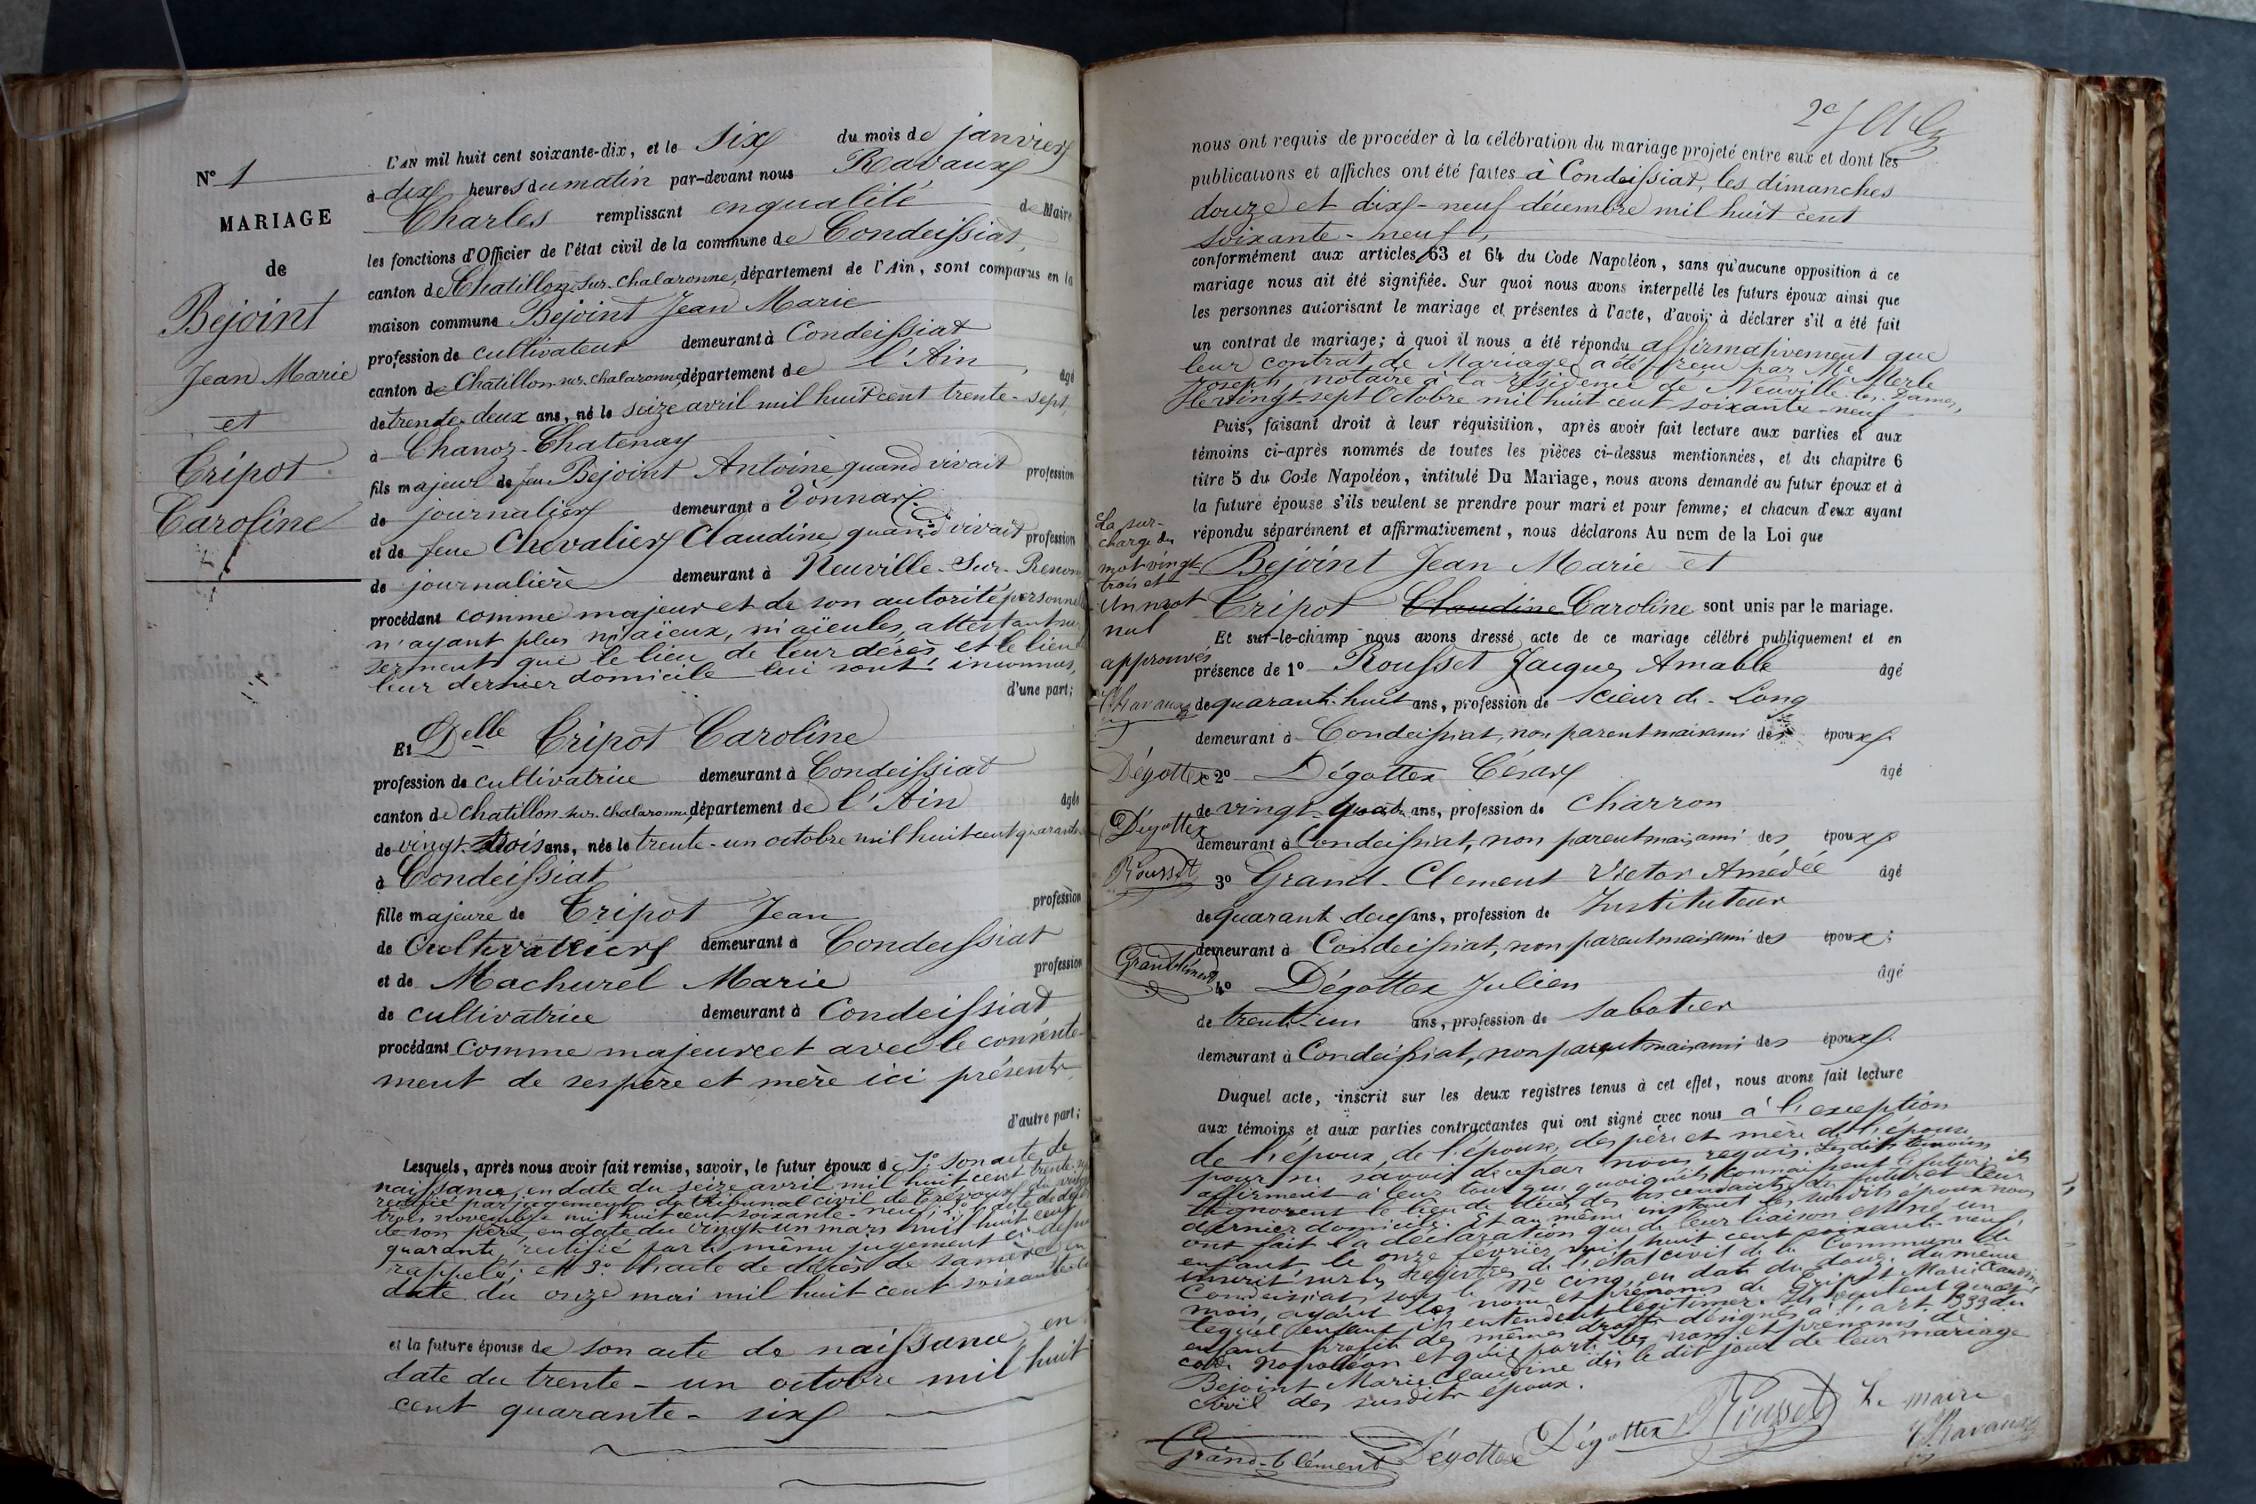 N° 1
MARIAGE
de
Bejoint
Jean Marie
et
Tripot
Caroline
L'AN mil huit cent soixante-dix, et le six du mois de janvier
à dix heures du matin par-devant nous Ravaux
Charles remplissant en qualité de Maire
les fonctions d'Officier de l'état civil de la commune de Condeissiat,
canton de Chatillon-sur-Chalaronne, département de l'Ain, sont comparus en la
maison commune Bejoint Jean Marie
profession de cultivateur demeurant à Condeissiat
canton de Chatillon-sur-Chalaronne département de l'Ain, âgé
de trente-deux ans, né le seize avril mil huit cent trente-sept,
à Chanoz-Chatenay
fils majeur de feu Bejoint Antoine quand vivait profession
de journalier demeurant à Vonnas
et de feue Chevalier Claudine quand vivait profession
de journalière demeurant à Neuville-sur-Renom
procédant comme majeur et de son autorité personnelle
n'ayant plus ni aïeux, ni aïeules, attestant sur
serment que le lieu de leur décès et le lieu de
leur dernier domicile lui sont inconnus,
d'une part;
Et Delle Tripot Caroline
profession de cultivatrice demeurant à Condeissiat
canton de Chatillon-sur-Chalaronne, département de l'Ain âgée
de vingt-trois ans, née le trente-un octobre mil huit cent quarante
à Condeissiat
fille majeure de Tripot Jean profession
de Cultivateur demeurant à Condeissiat
et de Machurel Marie profession
de cultivatrice demeurant à Condeissiat
procédant comme majeure et avec le consente-
ment de ses père et mère ici présents
d'autre part;
Lesquels, après nous avoir fait remise, savoir, le futur époux de 1° son acte de
naissance, en date du seize avril mil huit cent trente-
rectifié par jugement du tribunal civil de Trévoux du vingt
trois novembre mil huit cent soixante-neuf; 2° l'acte de décès
de son père, en date du vingt-un mars mil huit cent
quarante, rectifié par le même jugement ci-dessus
rappelé; et 3° l'acte de décès de sa mère en
date du onze mai mil huit cent soixante
et la future épouse de son acte de naissance, en
date du trente-un octobre mil huit
cent quarante-six
nous ont requis de procéder à la célébration du mariage projeté entre eux et dont les
publications et affiches ont été faites à Condeissiat, les dimanches
douze et dix-neuf décembre mil huit cent
soixante-neuf,
conformément aux articles 63 et 64 du Code Napoléon, sans qu'aucune opposition à ce
mariage nous ait été signifiée. Sur quoi nous avons interpellé les futurs époux ainsi que
les personnes autorisant le mariage et présentes à l'acte, d'avoir à déclarer s'il a été fait
un contrat de mariage; à quoi il nous a été répondu affirmativement que
leur contrat de Mariage a été reçu par Me Merle
Joseph, notaire à la résidence de Neuville-les-Dames,
le vingt-sept Octobre mil huit cent soixante-neuf
Puis, faisant droit à leur réquisition, après avoir fait lecture aux parties et aux
témoins ci-après nommés de toutes les pièces ci-dessus mentionnées, et du chapitre 6
titre 5 du Code Napoléon, intitulé Du Mariage, nous avons demandé au futur époux et à
la future épouse s'ils veulent se prendre pour mari et pour femme; et chacun d'eux ayant
répondu séparément et affirmativement, nous déclarons Au nom de la Loi que
Bejoint Jean Marie et
Tripot Claudine Caroline sont unis par le mariage.
La sur-
charge du
mot vingt-
trois et
un mot
nul
approuvés
C. Ravaux
Dégottex
Dégottex
Rousset
Grand-Clément
Et sur-le-champ nous avons dressé acte de ce mariage célébré publiquement et en
présence de 1° Rousset Jacques Amable âgé
de quarante-huit ans, profession de scieur de-Long
demeurant à Condeissiat, non parent mais ami des époux.
2° Dégottex César âgé
de vingt-quatre ans, profession de charron
demeurant à Condeissiat, non parent mais ami des époux
3° Grand-Clement Victor Amédée âgé
de quarante deux ans, profession de Instituteur
demeurant à Condeissiat, non parent mais ami des époux;
4° Dégottex Julien âgé
de trente-un ans, profession de sabotier
demeurant à Condeissiat, non parent mais ami des époux.
Duquel acte, inscrit sur les deux registres tenus à cet effet, nous avons fait lecture
aux témoins et aux parties contractantes qui ont signé avec nous à l'exception
de l'époux, de l'épouse, des père et mère de l'épouse
pour ne savoir de ce par nous requis. Les dits témoins
affirment à leur tour que quoiqu'ils connaissent le futur; ils
ignorent le lieu de décès des ascendants du futur et leur
dernier domicile. Et au même instant les susdits époux nous
ont fait la déclaration que de leur liaison est né un
enfant le onze février mil huit cent soixante-neuf,
inscrit sur les registres de l'état civil de la Commune de
Condeissiat sous le N° cinq, en date du douze du même
mois, ayant les nom et prénoms de Tripot Marie Claudine,
lequel enfant ils entendent légitimer. Ils veulent que cet
enfant profite des mêmes droits désignés à l'art 333 du
code Napoléon et qu'il porte les nom et prénoms de
Bejoint Marie Claudine dès le dit jour de leur mariage
civil des susdits époux.
Grand-Clément Dégottex Dégottex Rousset Le maire
C. Ravaux